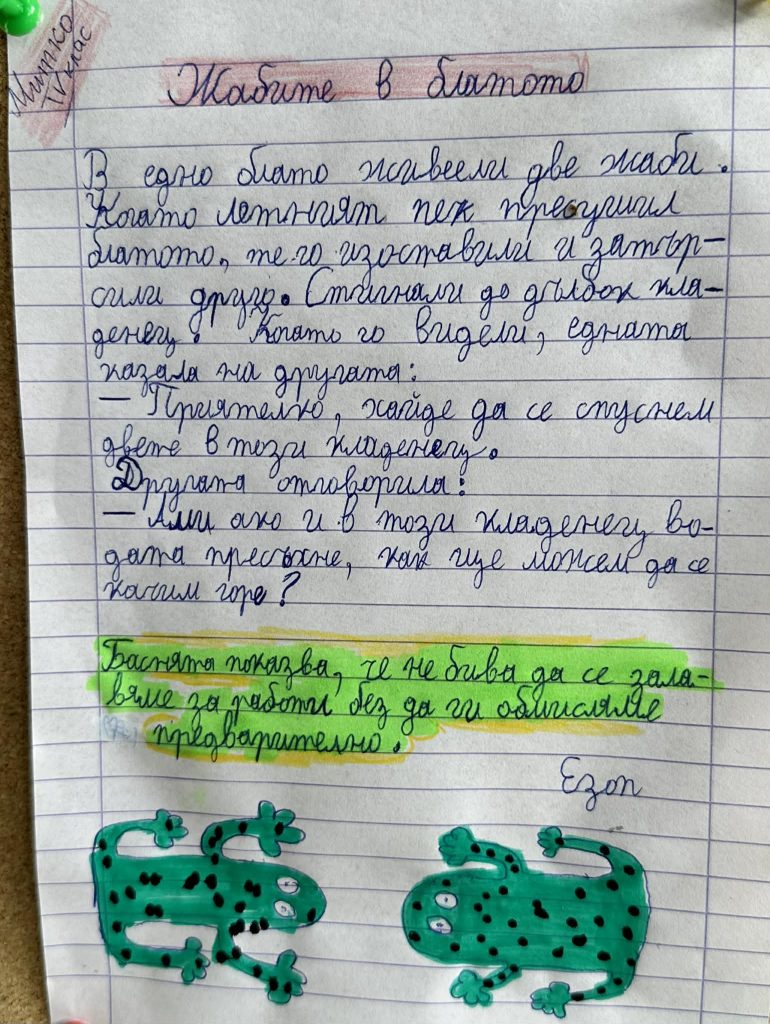 Митко
IV клас
Жабите в блатото
В едно блато живеели две жаби.
Когато летният пек пресушил
блатото, те го изоставили и затър-
сили друго. Стигнали до дълбок кла-
денец. Когато го видели, едната
казала на другата:
– Приятелко, хайде да се спуснем
двете в този кладенец.
Другата отговорила:
– Ами ако и в този кладенец во-
дата пресъхне, как ще можем да се
качим горе?
Баснята показва, че не бива да се зала-
вяме за работи без да ги обмисляме
предварително.
Езоп